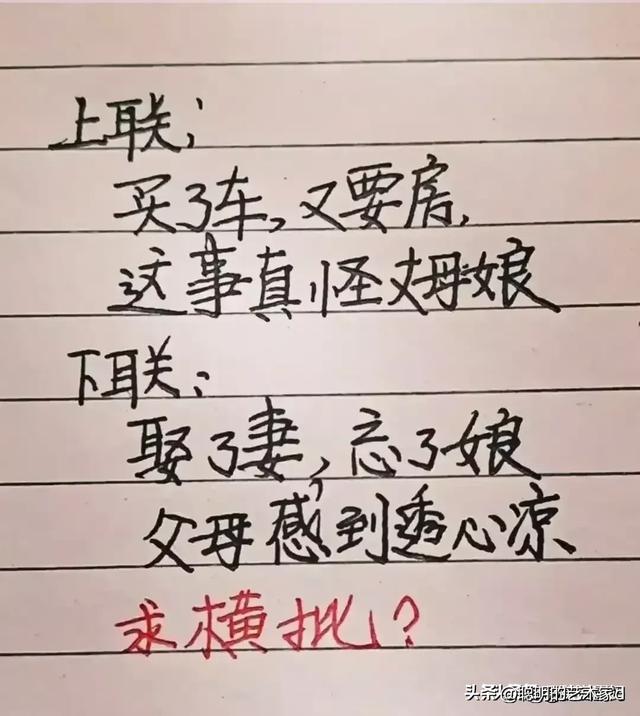 上联:
买了车,又要房,
这事真怪丈母娘
下联:
娶了妻,忘了娘
父母感到透心凉
求横批?
头条@聪明的艺术家d